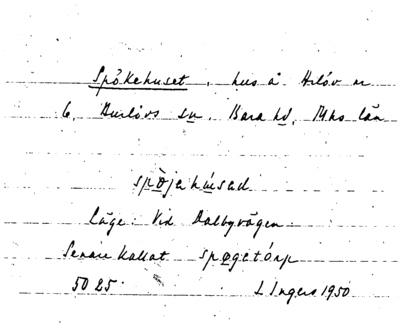 Spökehuset, hus å Arlöv nr
6, Burlövs sn, Bara hd, Mhs län
spøjahúsad
Läge: Vid Dalbyvägen
Senare kallat spøgetórp
5025 I Ingers 1950